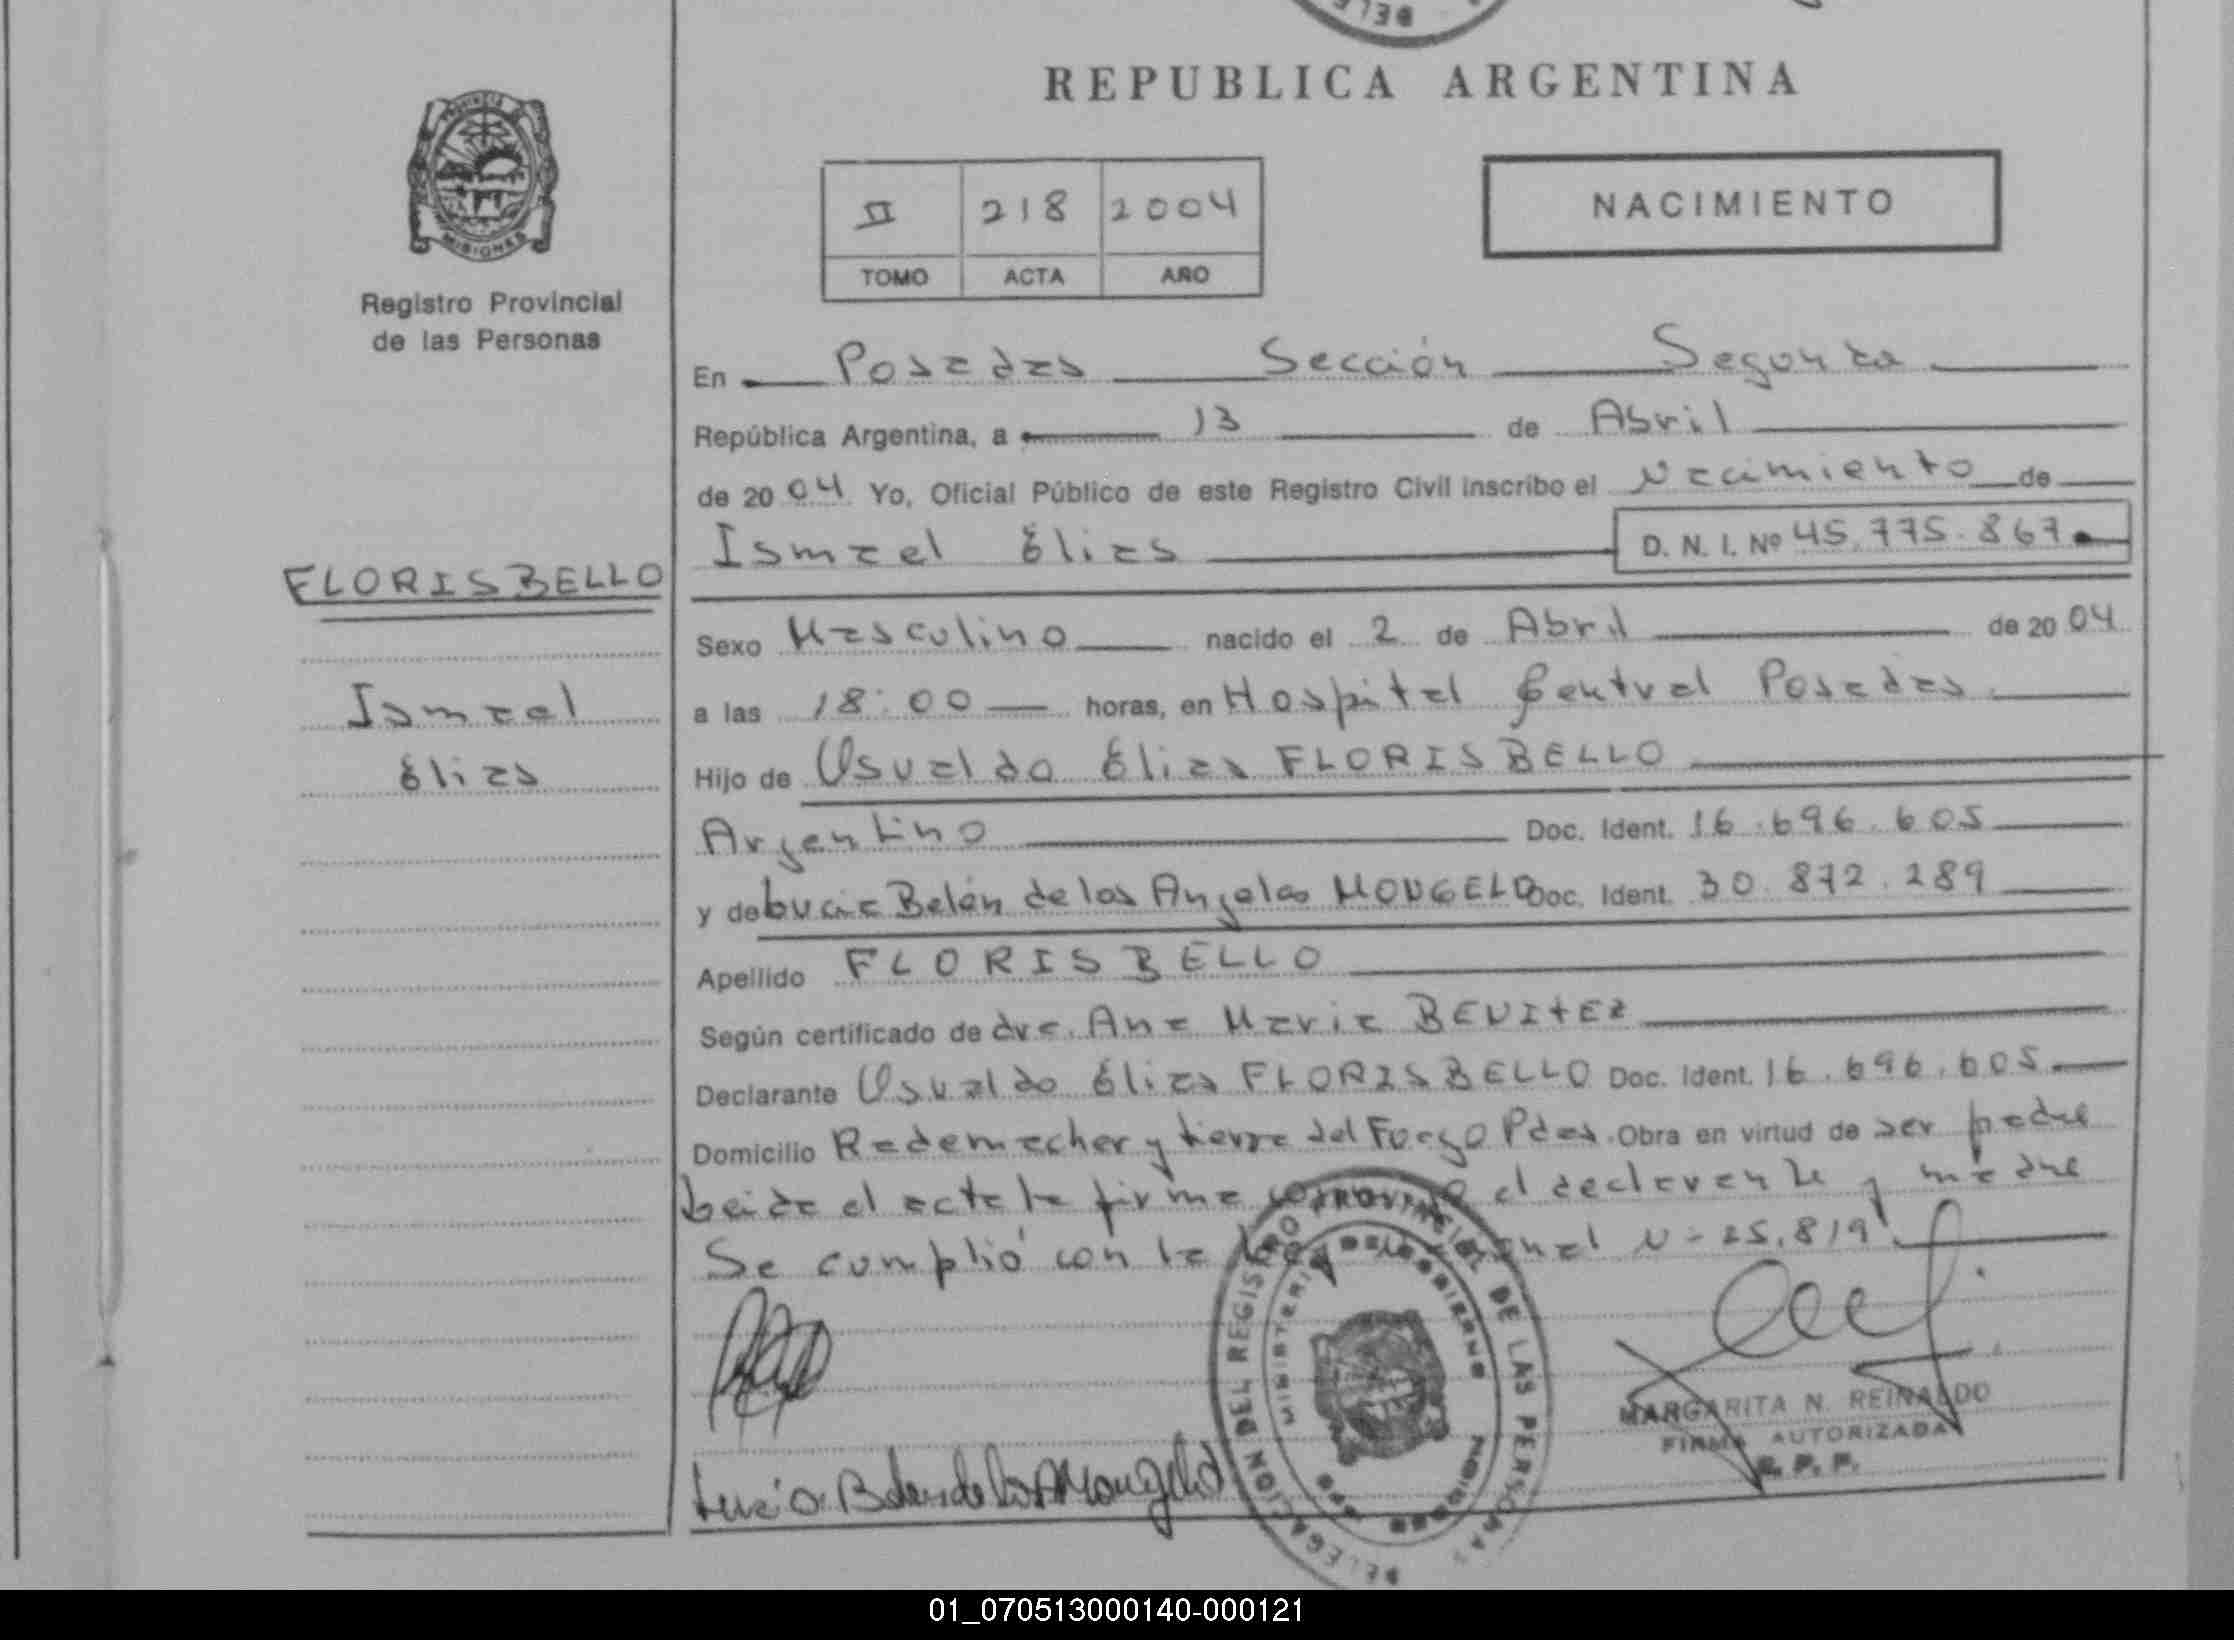 REPUBLICA ARGENTINA
PROVINCIA
MISIONES
Registro Provincial
de las Personas
II 218 2004
TOMO ACTA AÑO
NACIMIENTO
En Posadas Sección Segunda
República Argentina, a 13 de Abril
de 2004 Yo, Oficial Público de este Registro Civil inscribo el Nacimiento de
Ismael Elias D. N. I. Nº 45.775.867.
FLORISBELLO
Ismael
Elias
Sexo Masculino nacido el 2 de Abril de 2004
a las 18:00 horas, en Hospital Central Posadas
Hijo de Osvaldo Elias FLORISBELLO
Argentino Doc. Ident. 16.696.605
y de Lucia Belén de los Angeles MONGELO Doc. Ident. 30.872.289
Apellido FLORISBELLO
Según certificado de dra. Ana Maria BENITEZ
Declarante Osvaldo Elias FLORISBELLO Doc. Ident. 16.696.605
Domicilio Rademacher y tierra del Fuego Pdas. Obra en virtud de ser padre
Leida el acta la firma el declarante y madre
Se cumplió con la N= 25.819
DELEGACION DEL REGISTRO PROVINCIAL DE LAS PERSONAS
MINISTERIO DE GOBIERNO
MISIONES
Lucia Belen de los A Mongelo
MARGARITA N. REINALDO
FIRMA AUTORIZADA
R. P. P.
01_070513000140-000121